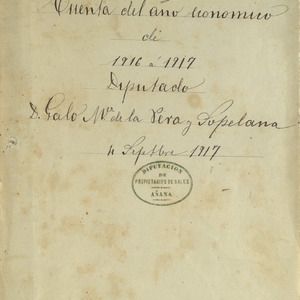 Cuenta del año economico
de
1916 á 1917
Diputado
D. Galo Mª de la Pera y Sopelana
4 Septbre 1917
DIPUTACION
DE
PROPIETARIOS DE SALES
AÑANA